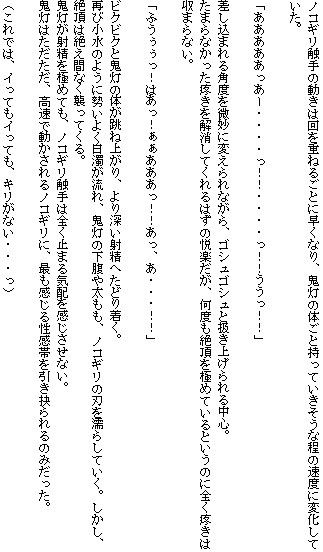 ノコギリ触手の動きは回を重ねるごとに早くなり、鬼灯の体ごと持っていきそうな程の速度に変化して
いた。
「ああああああっあー・・・・っー！・・・・っ！ーううっー！」
差し込まれる角度を微妙に変えられながら、ゴシュゴシュと扱き上げられる中心。
たまらなかった疼きを解消してくれるはずの悦楽だが、何度も絶頂を極めているというのに全く疼きは
収まらない。
「ふうぅぅっーはあっーぁぁあああっー！あっ、あ・・・！ー」
ビクビクと鬼灯の体が跳ね上がり、より深い射精へたどり着く。
再び小水のように勢いよく白濁が流れ、鬼灯の下腹や太もも、ノコギリの刃を濡らしていく。しかし、
絶頂は絶え間なく襲ってくる。
鬼灯が射精を極めても、ノコギリ触手は全く止まる気配を感じさせない。
鬼灯はただただ、高速で動かされるノコギリに、最も感じる性感帯を引き抉られるのみだった。
（これでは、イってもイっても、キリがない・・・っ）